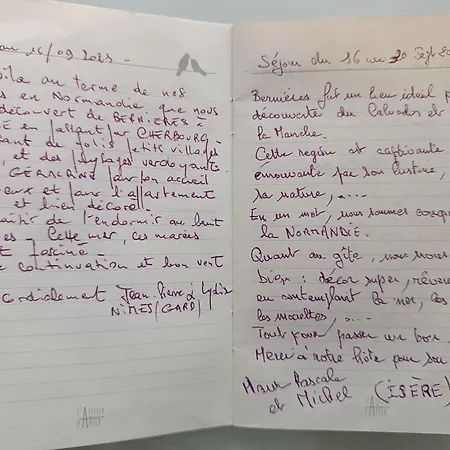 au 16/09/2023 -
ilà au terme de nos
s en Normandie que nous
découvert de BERNIÈRES à
en passant par CHERBOURG -
ant de jolis petits villages
, et des paysages verdoyants.
GERMAINE pour son accueil
eux et pour l'appartement
et bien décoré
aisir de s'endormir au bruit
es - Cette mer, ces marées
t fasciné -
e continuation et bon vent
cordialement Jean-Pierre & Lydia
NÎMES (GARD)
Séjour du 16 au 20 Sept 20
Bernières fut un lieu idéal p
découverte du Calvados et
la Manche.
Cette région est captivante
émouvante par son histoire,
sa nature, .....
En un mot, nous sommes conqu
la NORMANDIE.
Quant au gîte, nous nous
bien : décor super, rêver
en contemplant la mer, les
les mouettes, .....
Tout pour passer un bon s
Merci à notre hôte pour son
Pascale
et Michel (ISÈRE)